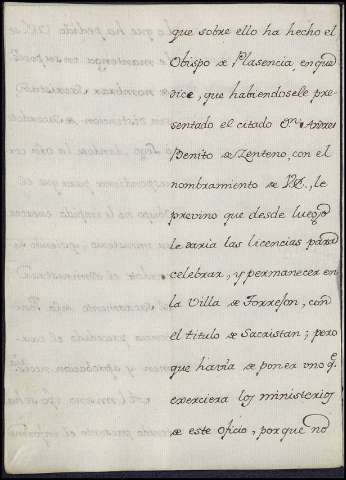 que sobre ello ha hecho el
Obispo de Plasencia, en que
dice, que habiendosele pre-
sentado el citado Dn. Andres
Benito de Zenteno, con el
nombramiento de VE., le
previno que desde luego
le daria las licencias para
celebrar, y permanecer en
la Villa de Torrejon, con
el titulo de Sacristan; pero
que havia de poner uno q.e
exerciera los ministerios
de este oficio, porque no